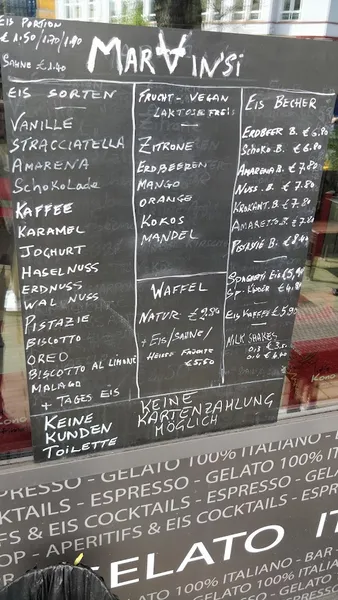 EIS PORTION
€ 1.50/1.70/1.90
SAHNE € 1.40
MARVINSI
EIS SORTEN
VANILLE
STRACCIATELLA
AMARENA
SCHOKOLADE
KAFFEE
KARAMEL
JOGHURT
HASELNUSS
ERDNUSS
WALNUSS
PISTAZIE
BISCOTTO
OREO
BISCOTTO AL LIMONE
MALAGA
+ TAGES EIS
FRUCHT - VEGAN
LAKTOSEFREI
ZITRONE
ERDBEEREN
MANGO
ORANGE
KOKOS
MANDEL
WAFFEL
NATUR
+ EIS/SAHNE/
HEISSE FRÜCHTE
€5,50
EIS BECHER
ERDBEER B. € 6.80
SCHOKO B. € 6.80
AMARENA B. € 7.80
NUSS B. € 7.80
KROKANT B. € 7.80
AMARETTO B. € 7.80
PISTAZIE B. € 8.40
SPAGHETTI EIS €5,90
SP. KINDER € 4.80
EIS KAFFEE € 5.90
MILK SHAKES
0,3
0,4
KEINE
KUNDEN
TOILETTE
KEINE
KARTENZAHLUNG
MÖGLICH
PRESSO - GELATO 100% ITALIANO -
CKTAILS - ESPRESSO - GELATO 100% IT
FS & EIS COCKTAILS - ESPRESSO -
OP - APERITIFS & EIS COCKTAILS - ESP
GELATO IT
ATO 100% ITALIANO - BAR -
GELATO 100% ITALIANO